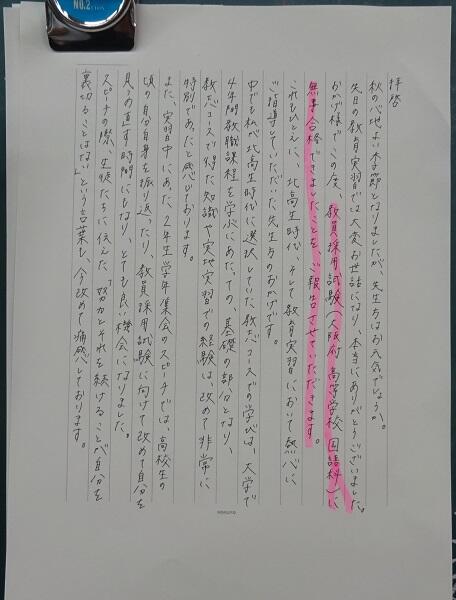 NO.2
拝啓
秋の心地よい季節となりましたが、先生方はお元気でしょうか。
先日の教育実習では大変お世話になり、本当にありがとうございました。
おかげ様で、この度、教員採用試験(大阪府 高等学校 国語科)に
無事合格できましたことを、ご報告させていただきます。
これもひとえに、北高生時代、そして教育実習において熱心に
ご指導していただいた先生方のおかげです。
中でも私が北高生時代に選択していた教志コースでの学びは、大学で
4年間教職課程を学ぶにあたっての、基礎の部分となり、
教志コースで得た知識や実地実習での経験は、改めて非常に
特別であったと感じております。
また、実習中にあった2年生学年集会のスピーチでは、高校生の
頃の自分自身を振り返ったり、教員採用試験に向けて改めて自分を
見つめ直す時間にもなり、とても良い機会になりました。
スピーチの際、生徒たちに伝えた「努力とそれを続けることが自分を
裏切ることはない」という言葉も、今改めて痛感しております。